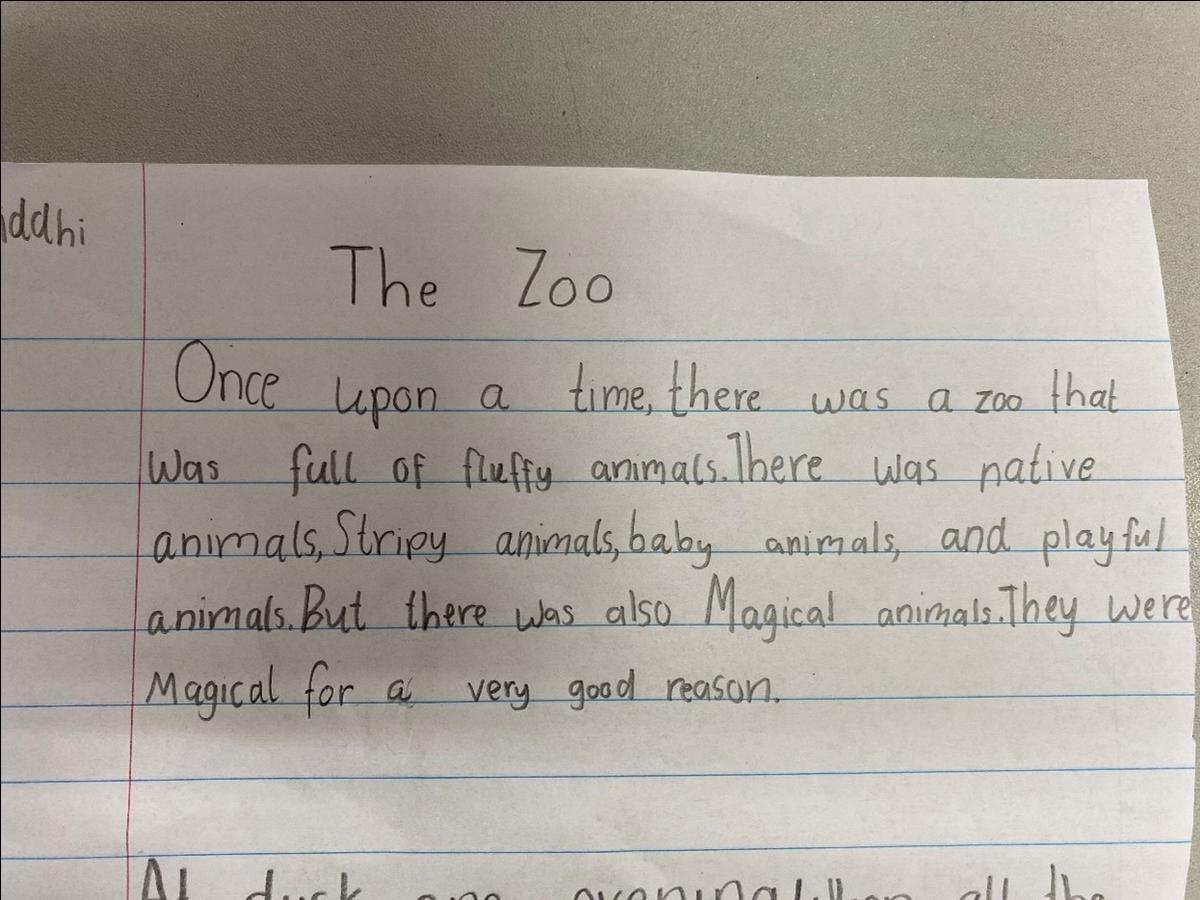 iddhi
The Zoo
Once upon a time, there was a zoo that
Was full of fluffy animals. There was native
animals, Stripy animals, baby animals, and playful
animals. But there was also Magical animals. They were
Magical for a very good reason.
At dusk one evening, when all the